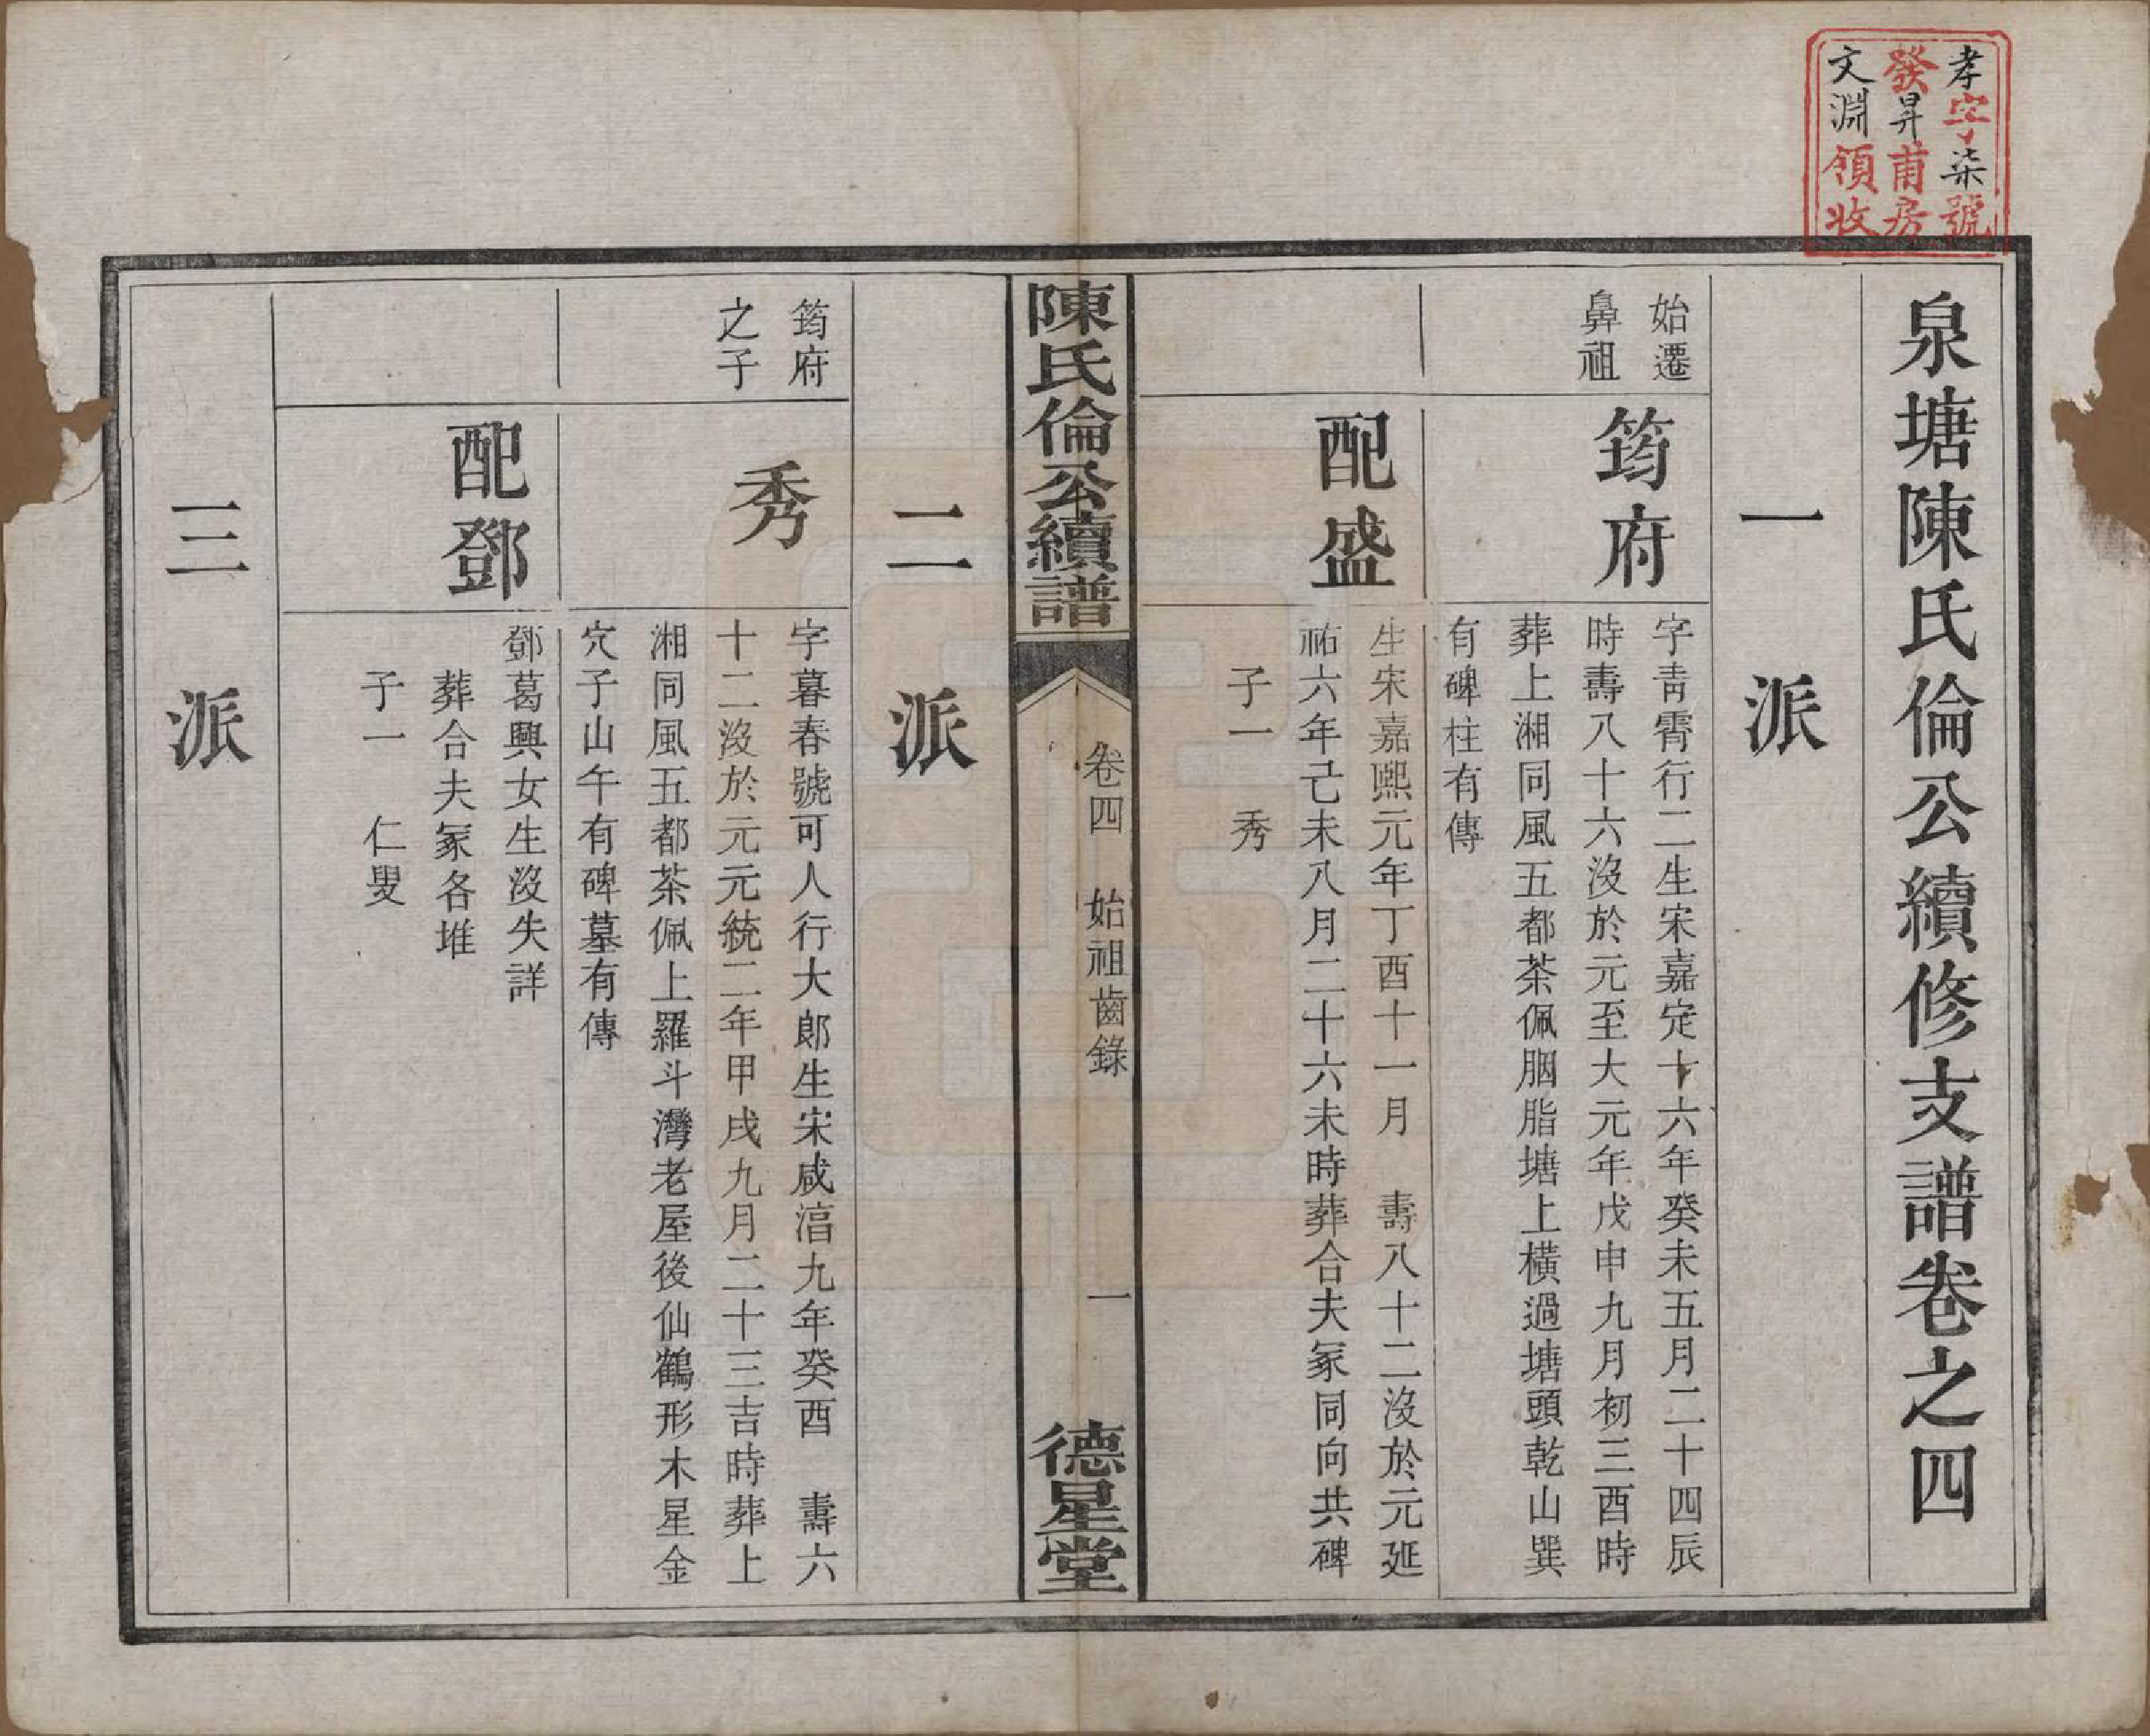 孝字柒號
發昇甫房
文淵領收
泉塘陳氏倫公續修支譜卷之四
一派
始遷
鼻祖
筠府
字靑霄行二生宋嘉定十六年癸未五月二十四辰
時壽八十六沒於元至大元年戊申九月初三酉時
葬上湘同風五都茶佩胭脂塘上橫過塘頭乾山巽
有碑柱有傳
配盛
生宋嘉熙元年丁酉十一月 壽八十二沒於元延
祐六年己未八月二十六未時葬合夫冢同向共碑
子一 秀
陳氏倫公續譜
卷四 始祖齒錄
一
德星堂
二派
筠府
之子
秀
字暮春號可人行大郎生宋咸湻九年癸酉 壽六
十二沒於元元統二年甲戌九月二十三吉時葬上
湘同風五都茶佩上羅斗灣老屋後仙鶴形木星金
穴子山午有碑墓有傳
配鄧
鄧葛興女生沒失詳
葬合夫冢各堆
子一 仁叟
三派